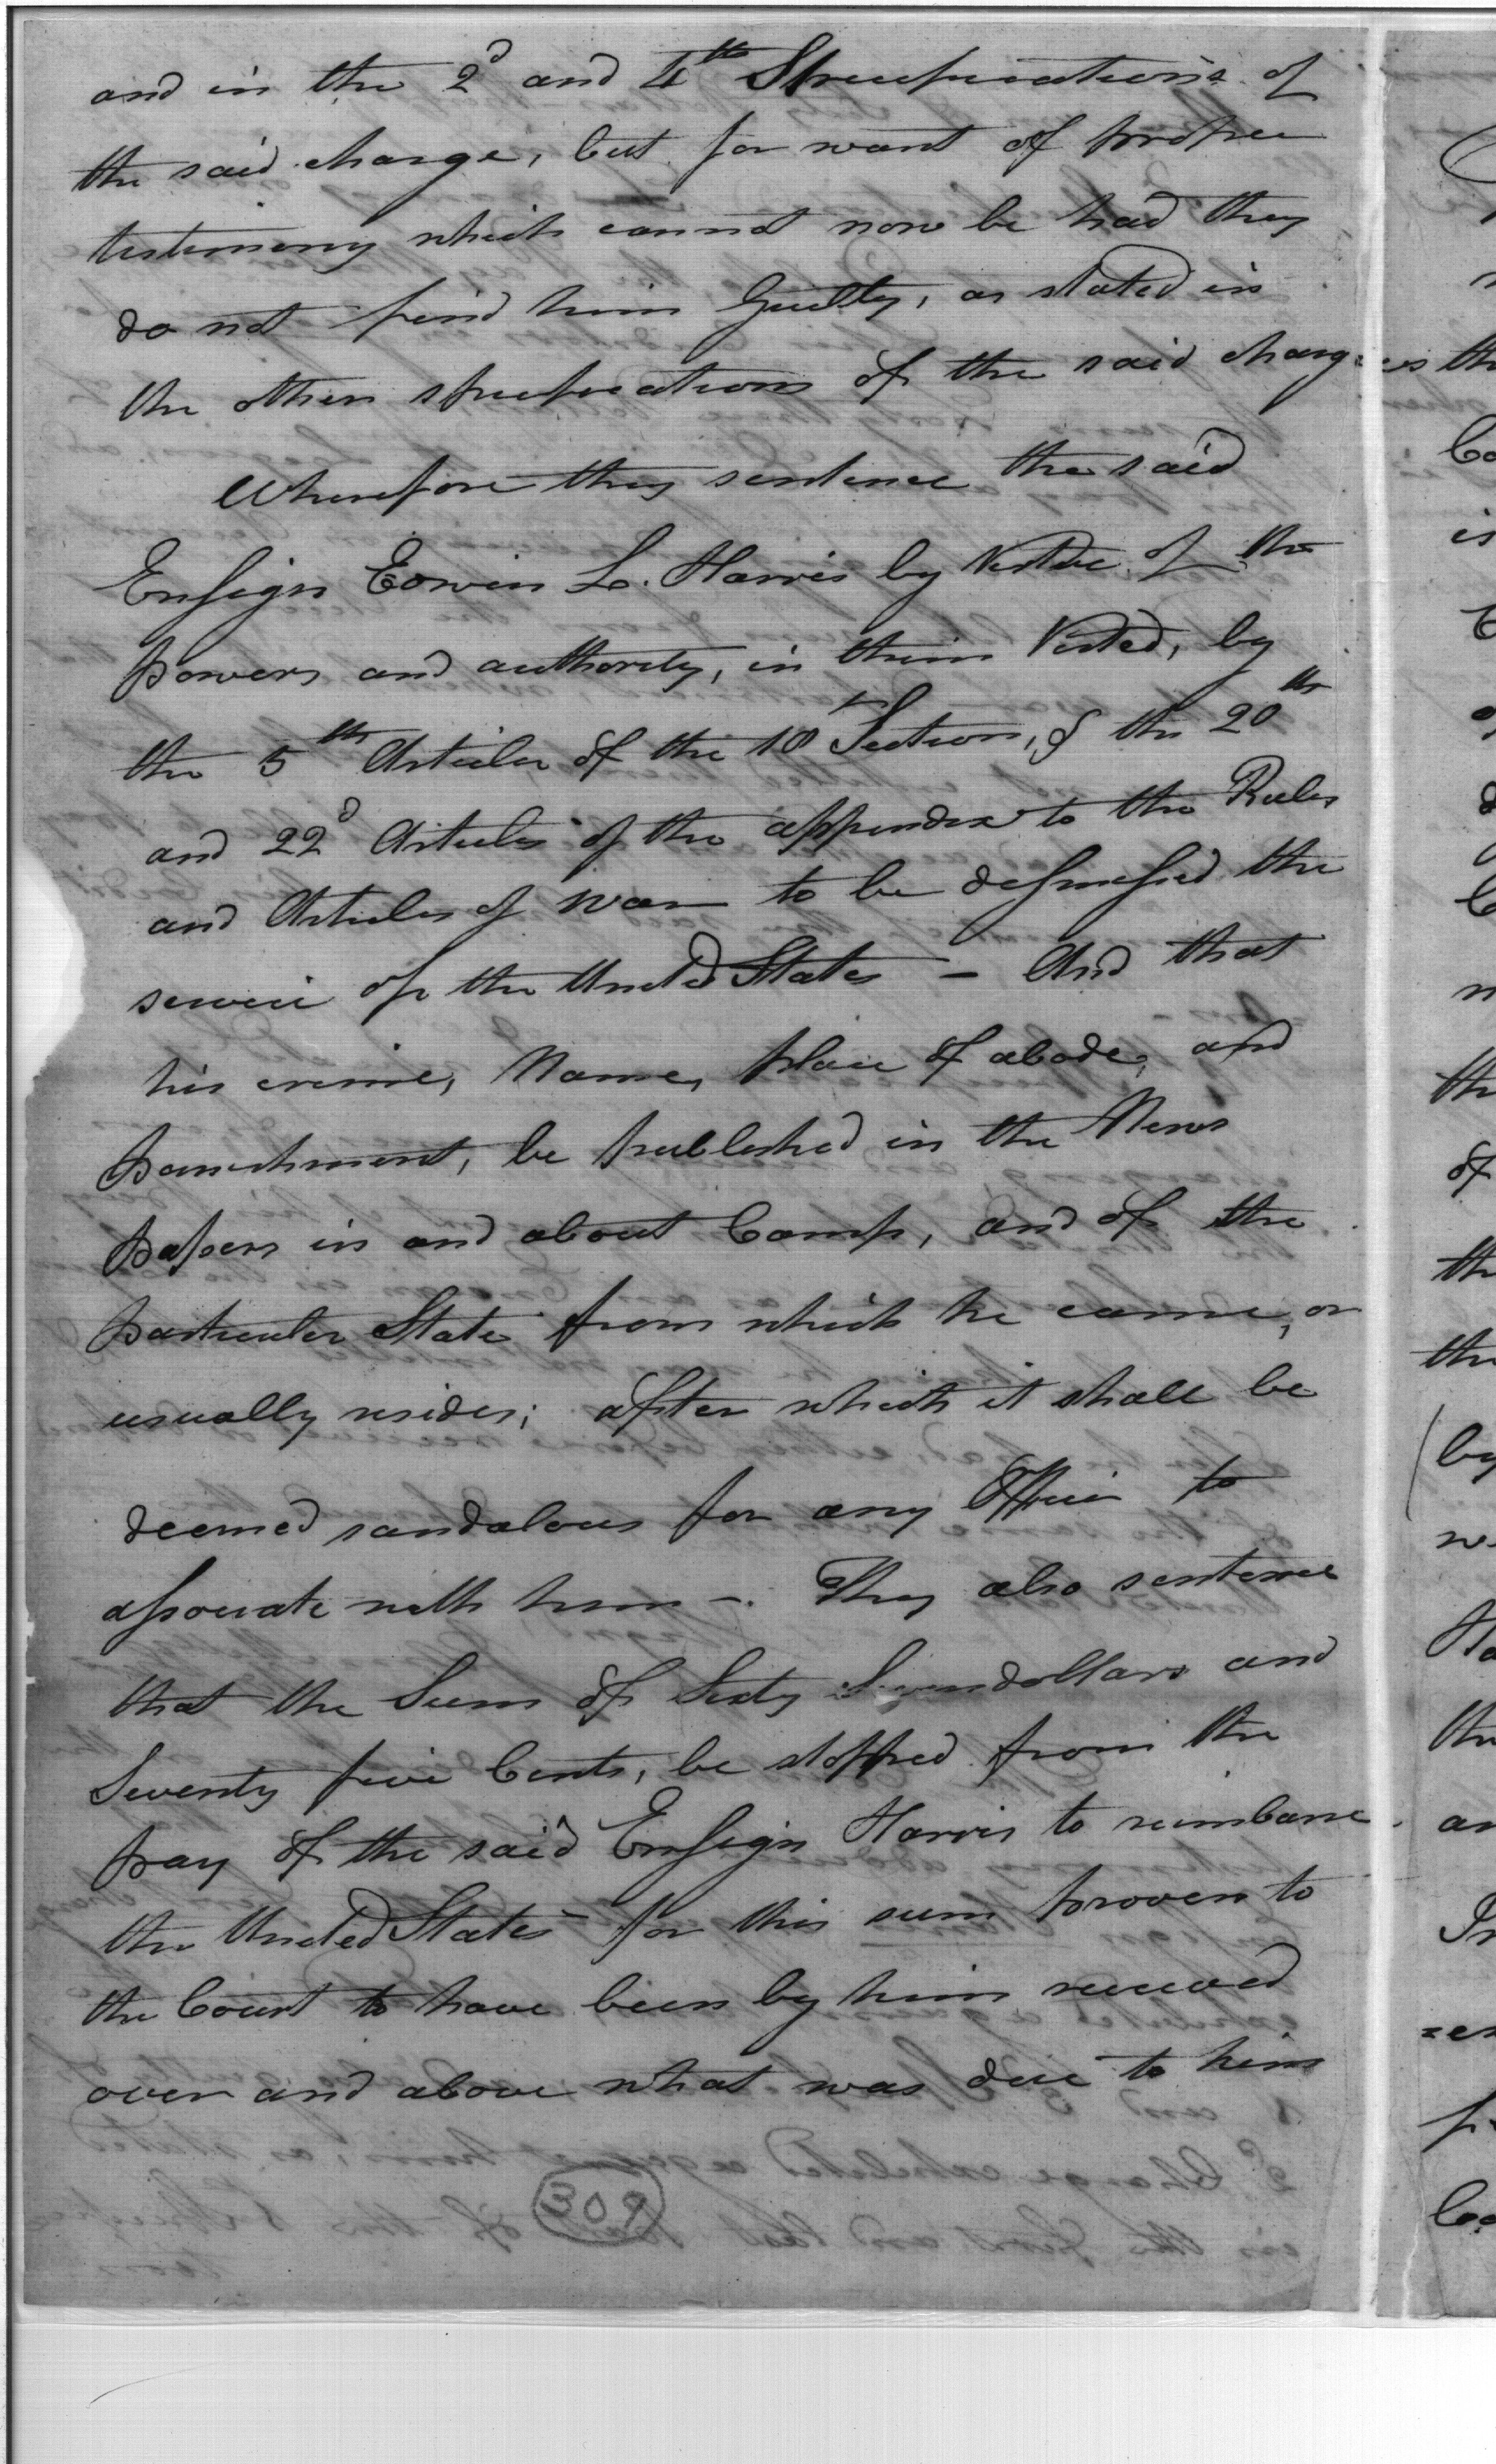 and in the 2d and 4th Specifications of
the said charge, but for want of proper
testimony which cannot now be had they
do not find him Guilty, as stated in
the other specifications of the said charge
Wherefore they sentence the said
Ensign Edwin L. Harris by Virtue of the
powers and authority, in them Vested, by
the 5th Article of the 18th Section, & the 20th
and 22d Articles of the appendix to the Rules
and Articles of War to be dismissed the
service of the United States – And that
his crime, Name, place of abode, and
punishment, be published in the News
papers in and about Camp, and of the
particular State from which he came, or
usually resides; after which it shall be
deemed sandalous for any Officer to
associate with him –. They also sentence
that the Sum of Sixty Seven dollars and
Seventy five Cents, be stopped from the
pay of the said Ensign Harris to reimburse
the United States for this sum proven to
the Court to have been by him received
over and above what was due to him
309